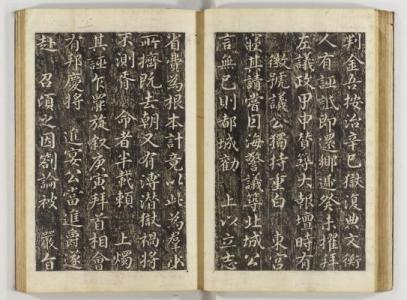 判金吾按治辛巳獄復典文衡
人有誣䛕即還鄉遞祭未擢拜
左議政甲申贊築大報壇時有
徽號議公獨持重白 東宮
寢其請嘗因海警議築北城公
言無已則都城勸 上以立志
省費為根本計竟以此為
所擠既去朝又有溥潜獄禍將
不測胥命者半載賴 上燭
其誣乍栄旋叙庚寅拜首相會
有邦慶將 進安公當進爵遂
赴 召頃之因劄論被 嚴旨